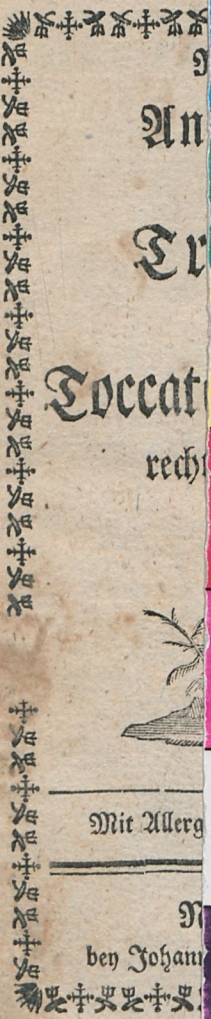 An
Tr
Toccat
recht
Mit Allerg
N
bey Johann